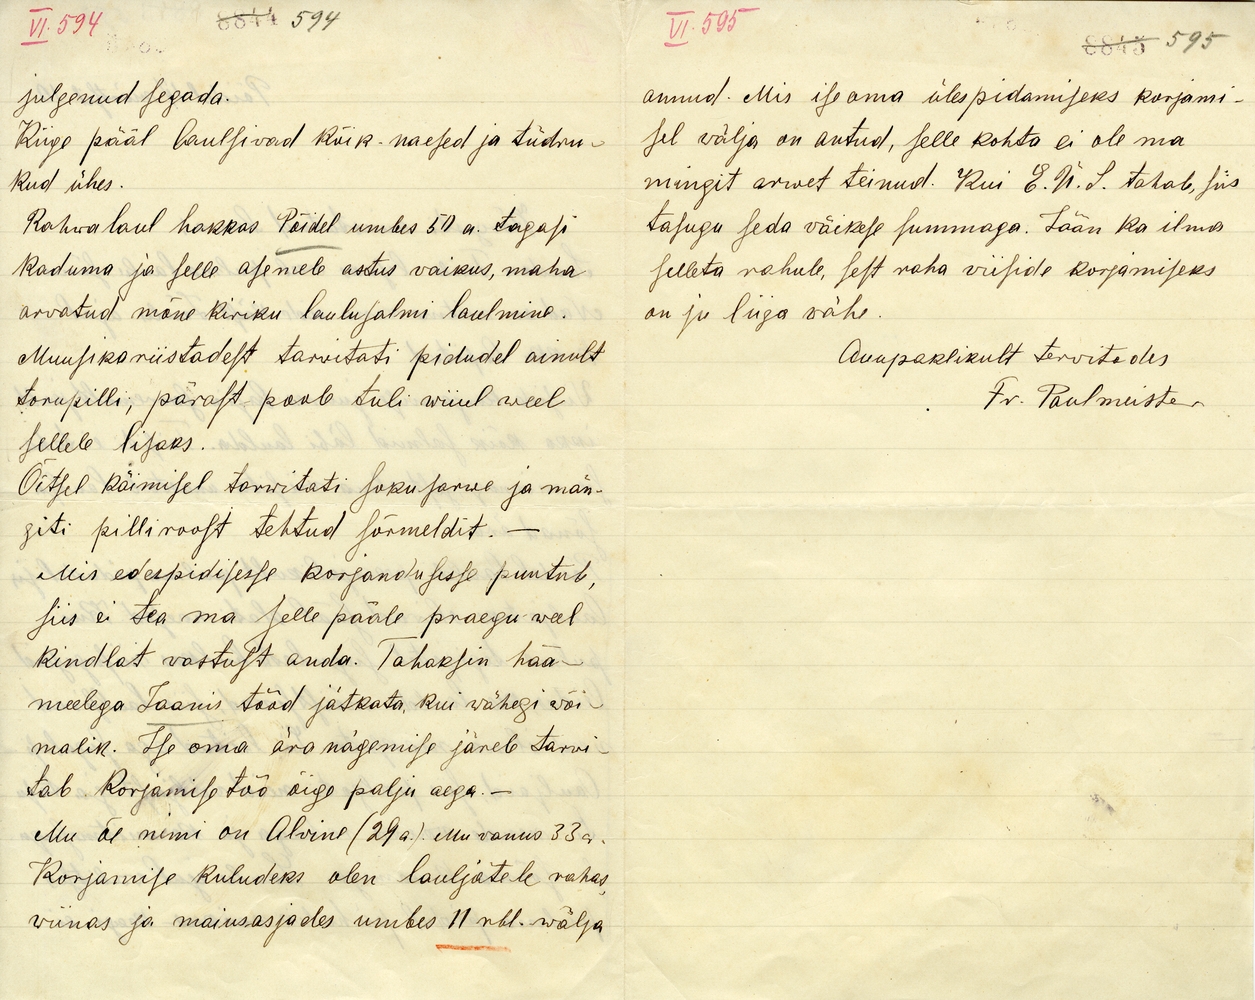 VI. 594
8844 594
julgenud segada.
Kiige pääl laulsivad kõik - naesed ja tüdru-
kud ühes.
Rahwalaul hakkas Pöidel umbes 50 a. tagasi
kaduma ja selle asemele astus vaikus, maha
arvatud mõne kiriku laulusalmi laulmine.
Muusikariistadest tarvitati pidudel ainult
torupilli; pärast poole tuli wiiul weel
sellele lisaks.
Öitsel käimisel tarwitati sokusarwe ja män-
giti pilliroost tehtud sõrmeldit. —
Mis edespidisesse korjandusesse puutub,
siis ei tea ma selle pääle praegu weel
kindlat vastust anda. Tahaksin hää-
meelega Jaanis tööd jätkata, kui wähegi wõi-
malik. Ise oma ära nägemise järele tarvi-
tab korjamise töö õige palju aega. —
Mu õe nimi on Alvine (29 a.). Mu vanus 33 a.
Korjamise kuludeks olen lauljatele rahas,
wiinas ja maiusasjades umbes 11 rbl. wälja
VI. 595
8845 595
annud. Mis ise oma ülespidamiseks korjami-
sel wälja on antud, selle kohta ei ole ma
mingit arwet teinud. Kui E. Ü. S. tahab, siis
tasugu seda väikese summaga. Jään ka ilma
selleta rahule, sest raha viiside korjamiseks
on ju liiga wähe.
Auupaklikult tervitades
Fr. Paulmeister